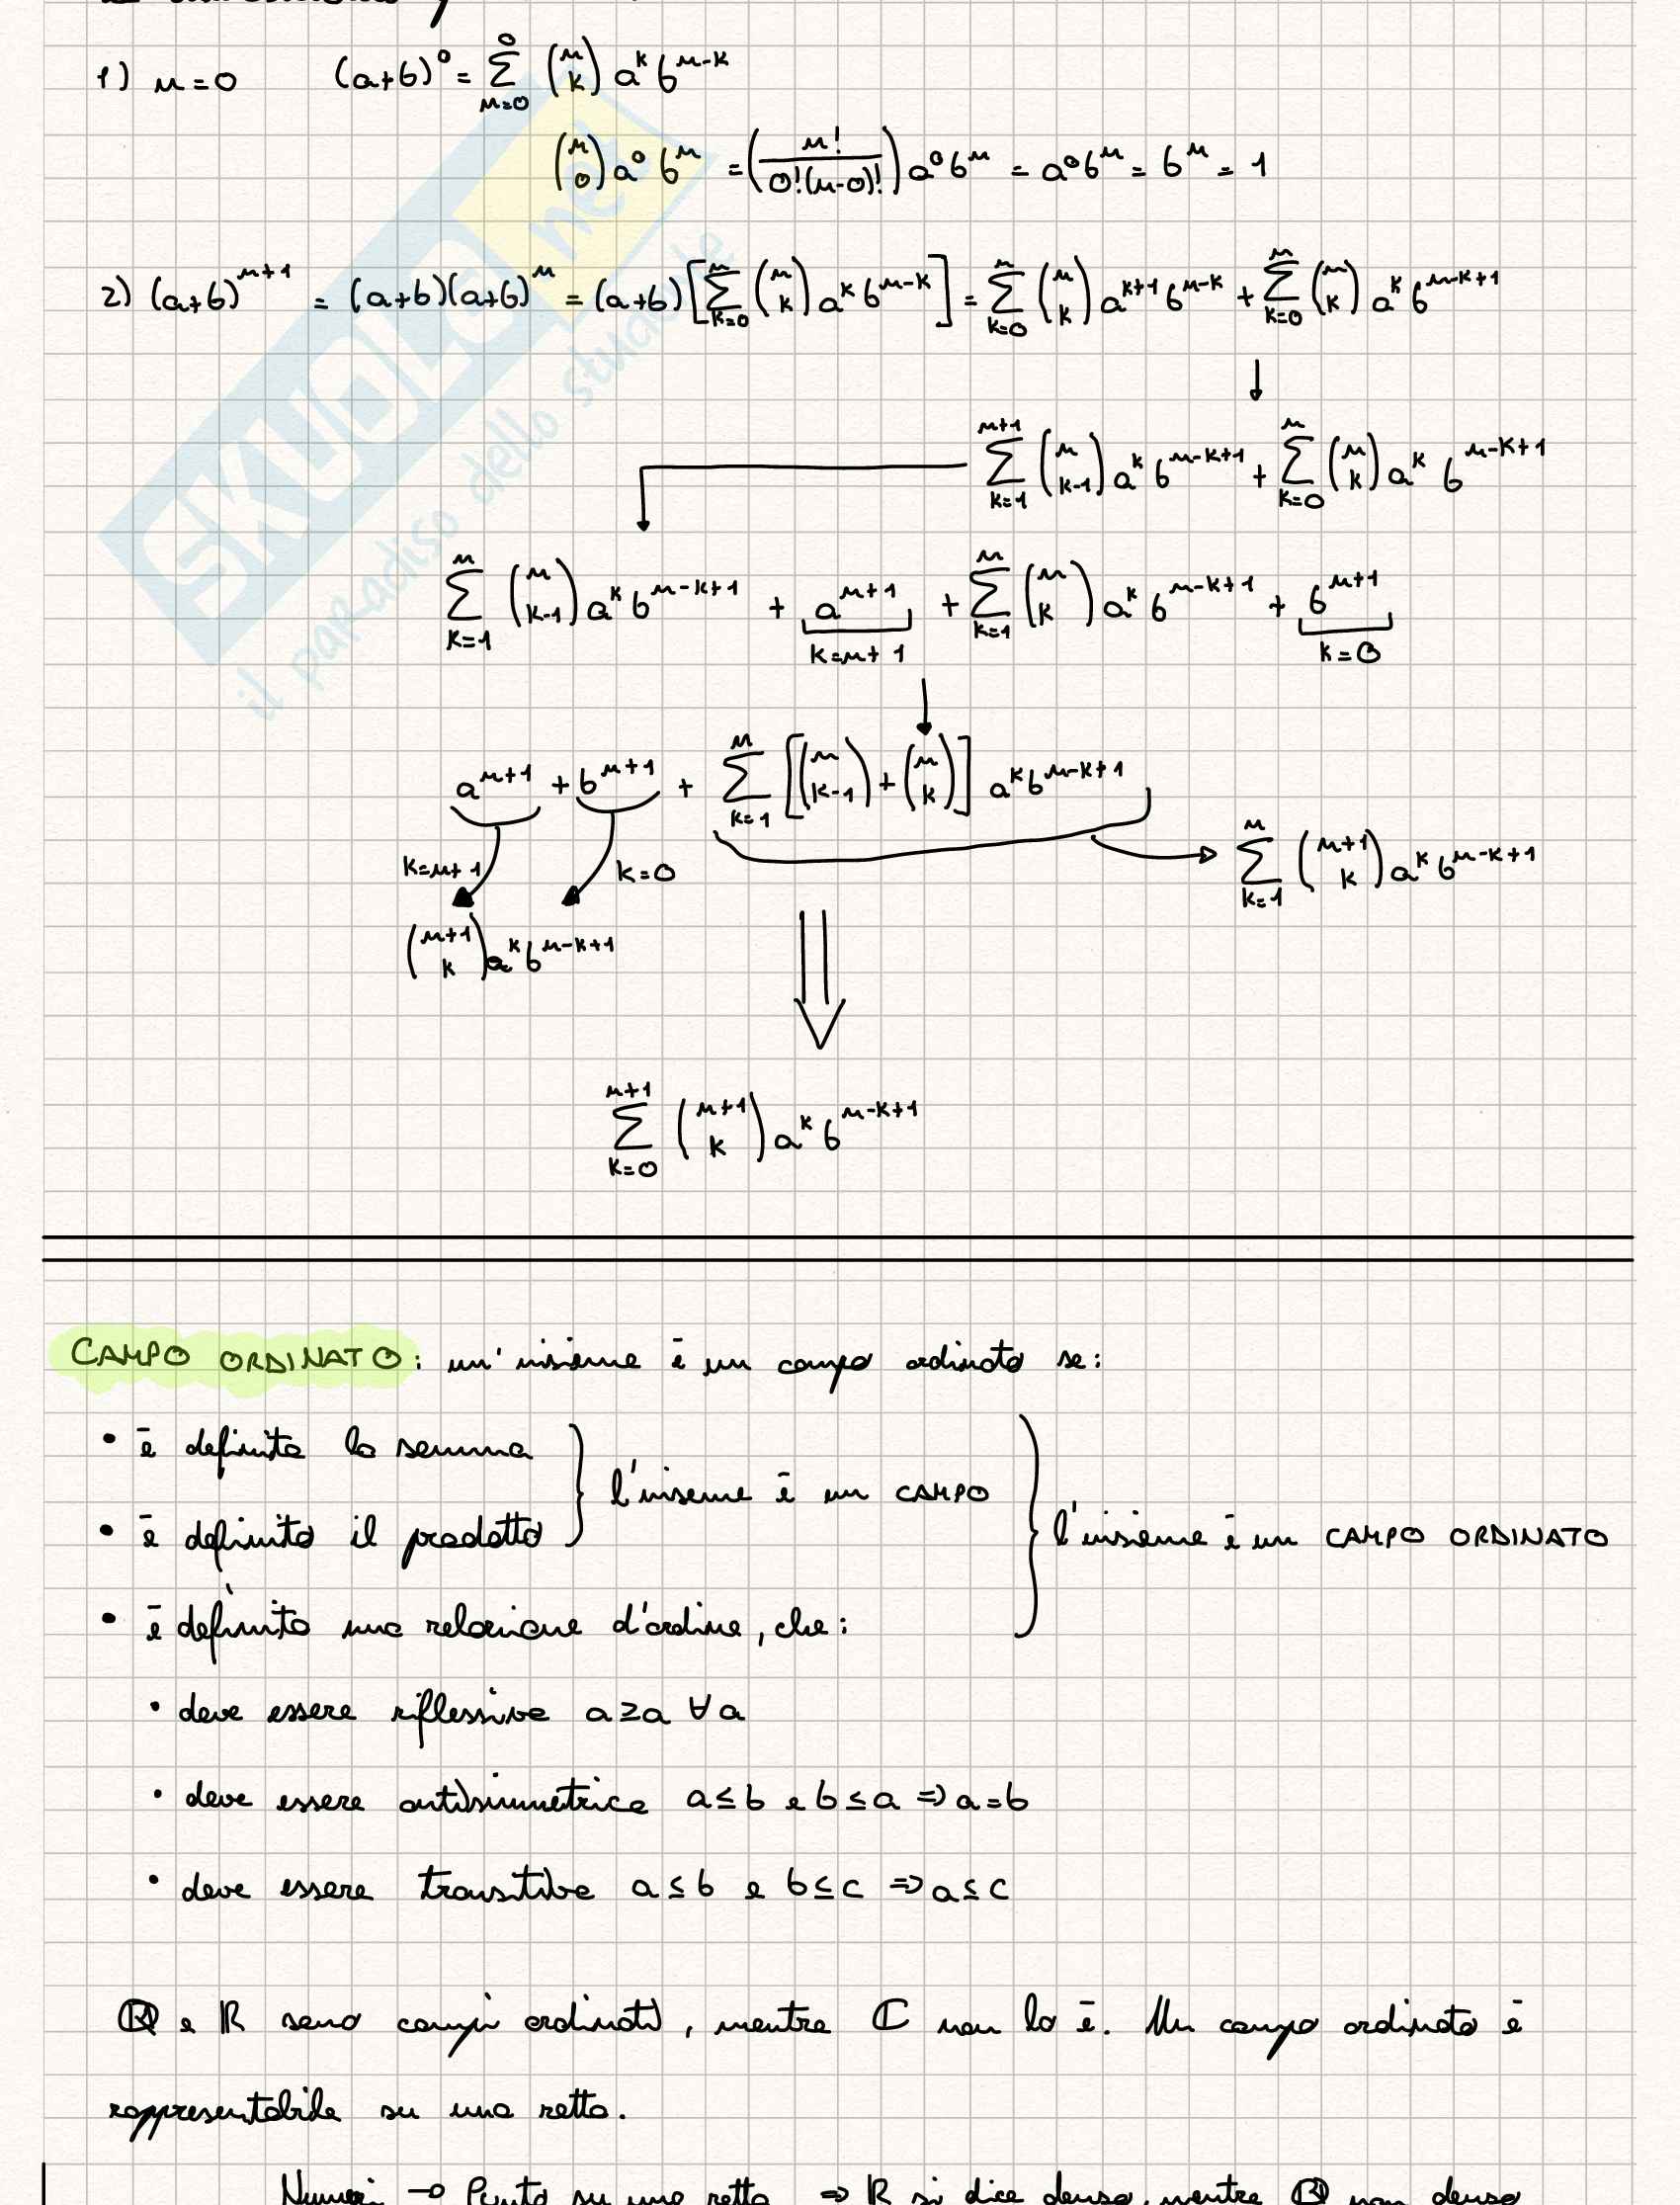 1) n=0 (a+b)⁰ = ∑_{n=0}^{0} (n k) a^k b^{n-k}
(n 0) a⁰ b^n = (n! / 0!(n-0)!) a⁰b^n = a⁰b^n = b^n = 1
2) (a+b)^{n+1} = (a+b)(a+b)^n = (a+b)[∑_{k=0}^{n} (n k) a^k b^{n-k}] = ∑_{k=0}^{n} (n k) a^{k+1} b^{n-k} + ∑_{k=0}^{n} (n k) a^k b^{n-k+1}
∑_{k=1}^{n+1} (n k-1) a^k b^{n-k+1} + ∑_{k=0}^{n} (n k) a^k b^{n-k+1}
∑_{k=1}^{n} (n k-1) a^k b^{n-k+1} + a^{n+1} + ∑_{k=1}^{n} (n k) a^k b^{n-k+1} + b^{n+1}
k=n+1 k=0
a^{n+1} + b^{n+1} + ∑_{k=1}^{n} [(n k-1) + (n k)] a^k b^{n-k+1}
k=n+1 k=0 ∑_{k=1}^{n} (n+1 k) a^k b^{n-k+1}
(n+1 k) a^k b^{n-k+1}
∑_{k=0}^{n+1} (n+1 k) a^k b^{n-k+1}
SKUOLA.net
il paradiso dello studente
CAMPO ORDINATO: un'insieme è un campo ordinato se:
• è definita la somma
l'insieme è un CAMPO
• è definito il prodotto
l'insieme è un CAMPO ORDINATO
• è definita una relazione d'ordine, che:
• deve essere riflessiva a≥a ∀a
• deve essere antisimmetrica a≤b e b≤a ⇒ a=b
• deve essere transitiva a≤b e b≤c ⇒ a≤c
ℚ e ℝ sono campi ordinati, mentre ℂ non lo è. Un campo ordinato è
rappresentabile su una retta.
Numeri → Punto su una retta ⇒ ℝ si dice denso, mentre ℚ non denso